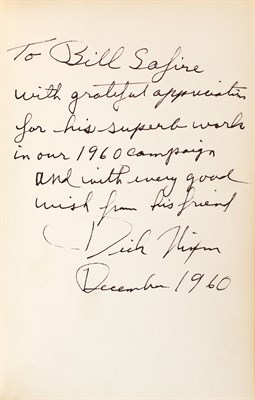 To Bill Safire
with grateful appreciation
for his superb work
in our 1960 campaign
and with every good
wish from his friend
Dick Nixon
December 1960